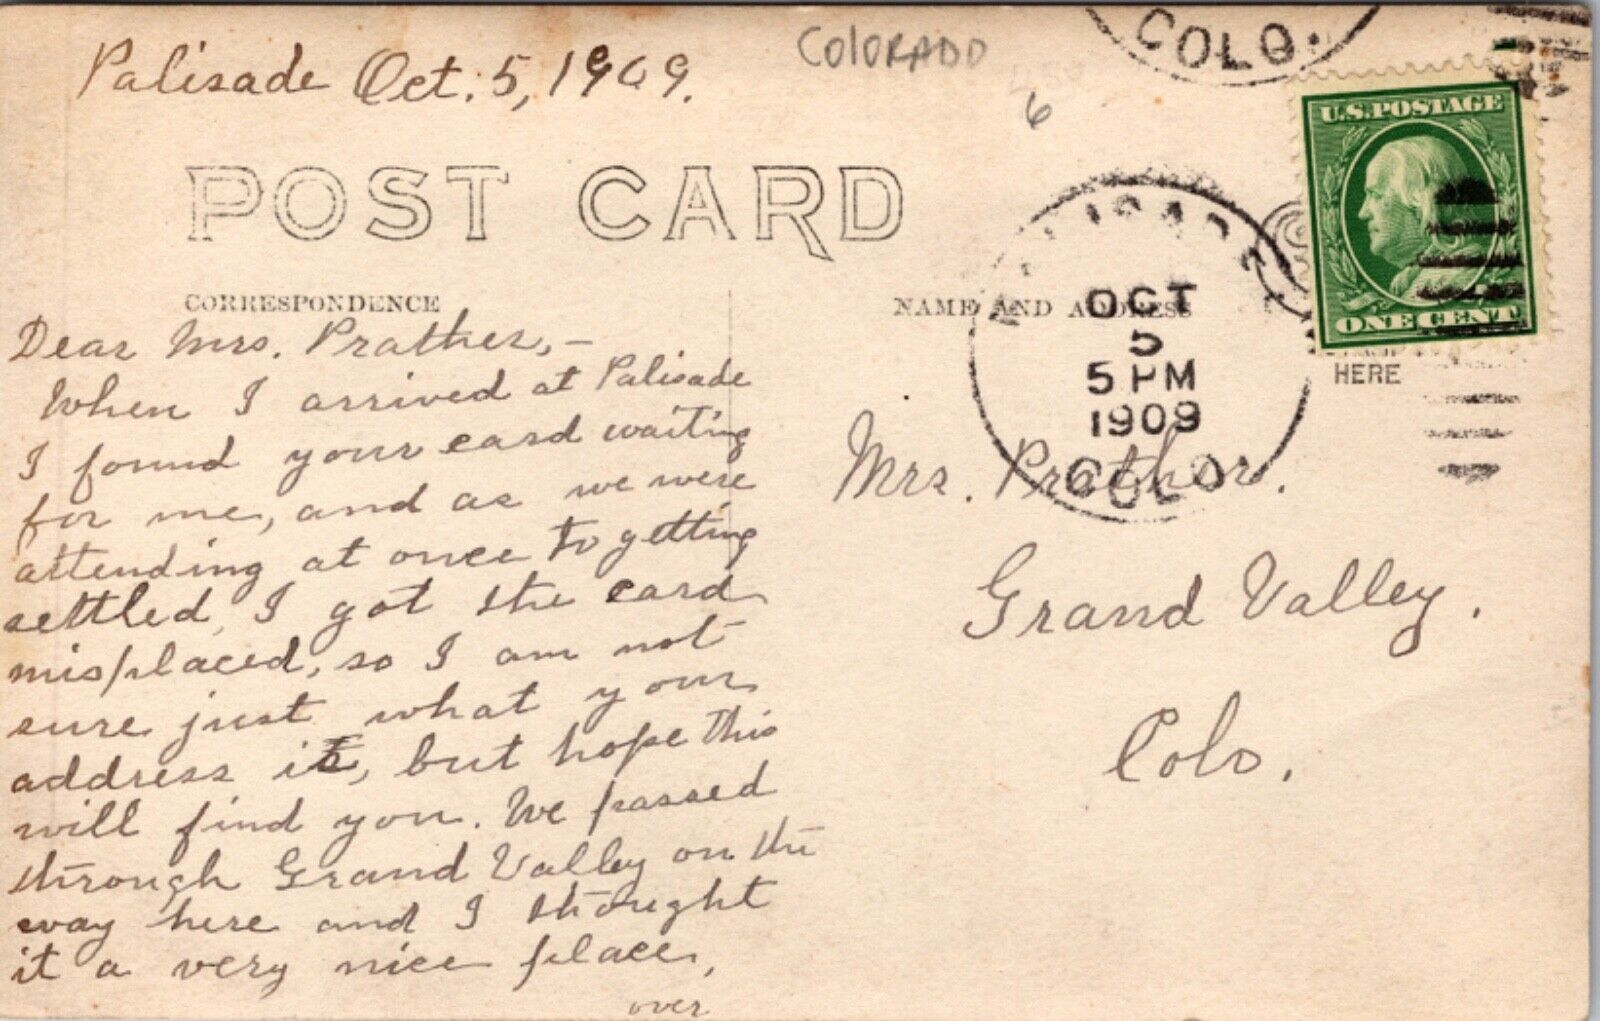 Palisade Oct. 5, 1909.
COLORADO
6
COLO.
U.S. POSTAGE
ONE CENT
POST CARD
PALISADE
OCT
5
5 PM
1909
COLO.
CORRESPONDENCE
NAME AND ADDRESS
HERE
Dear Mrs. Prather,-
When I arrived at Palisade
I found your card waiting
for me, and as we were
attending at once to getting
settled, I got the card
misplaced, so I am not
sure just what your
address is, but hope this
will find you. We passed
through Grand Valley on the
way here and I thought
it a very nice place,
over
Mrs. Prather.
Grand Valley.
Colo.